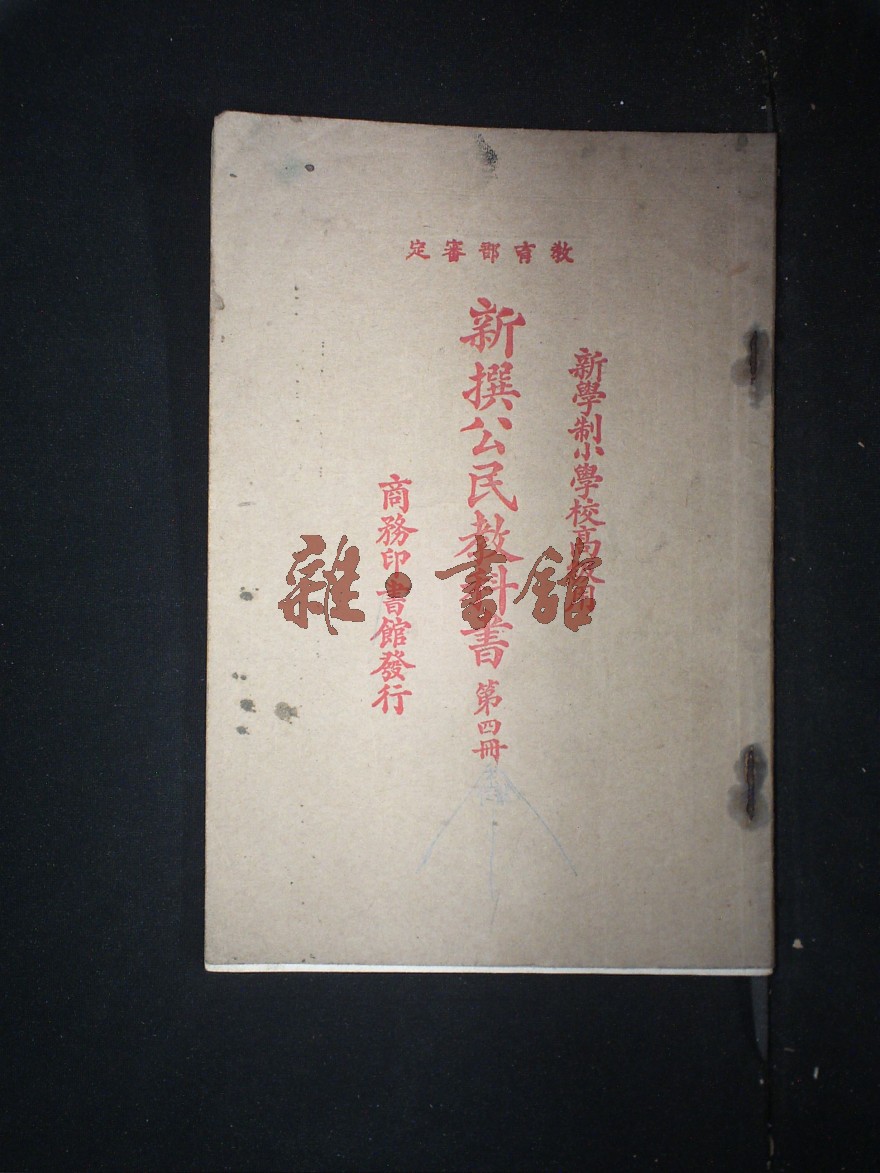 教育部審定
新學制小學校高級用
新撰公民教科書 第四冊
商務印書館發行
雜·書館